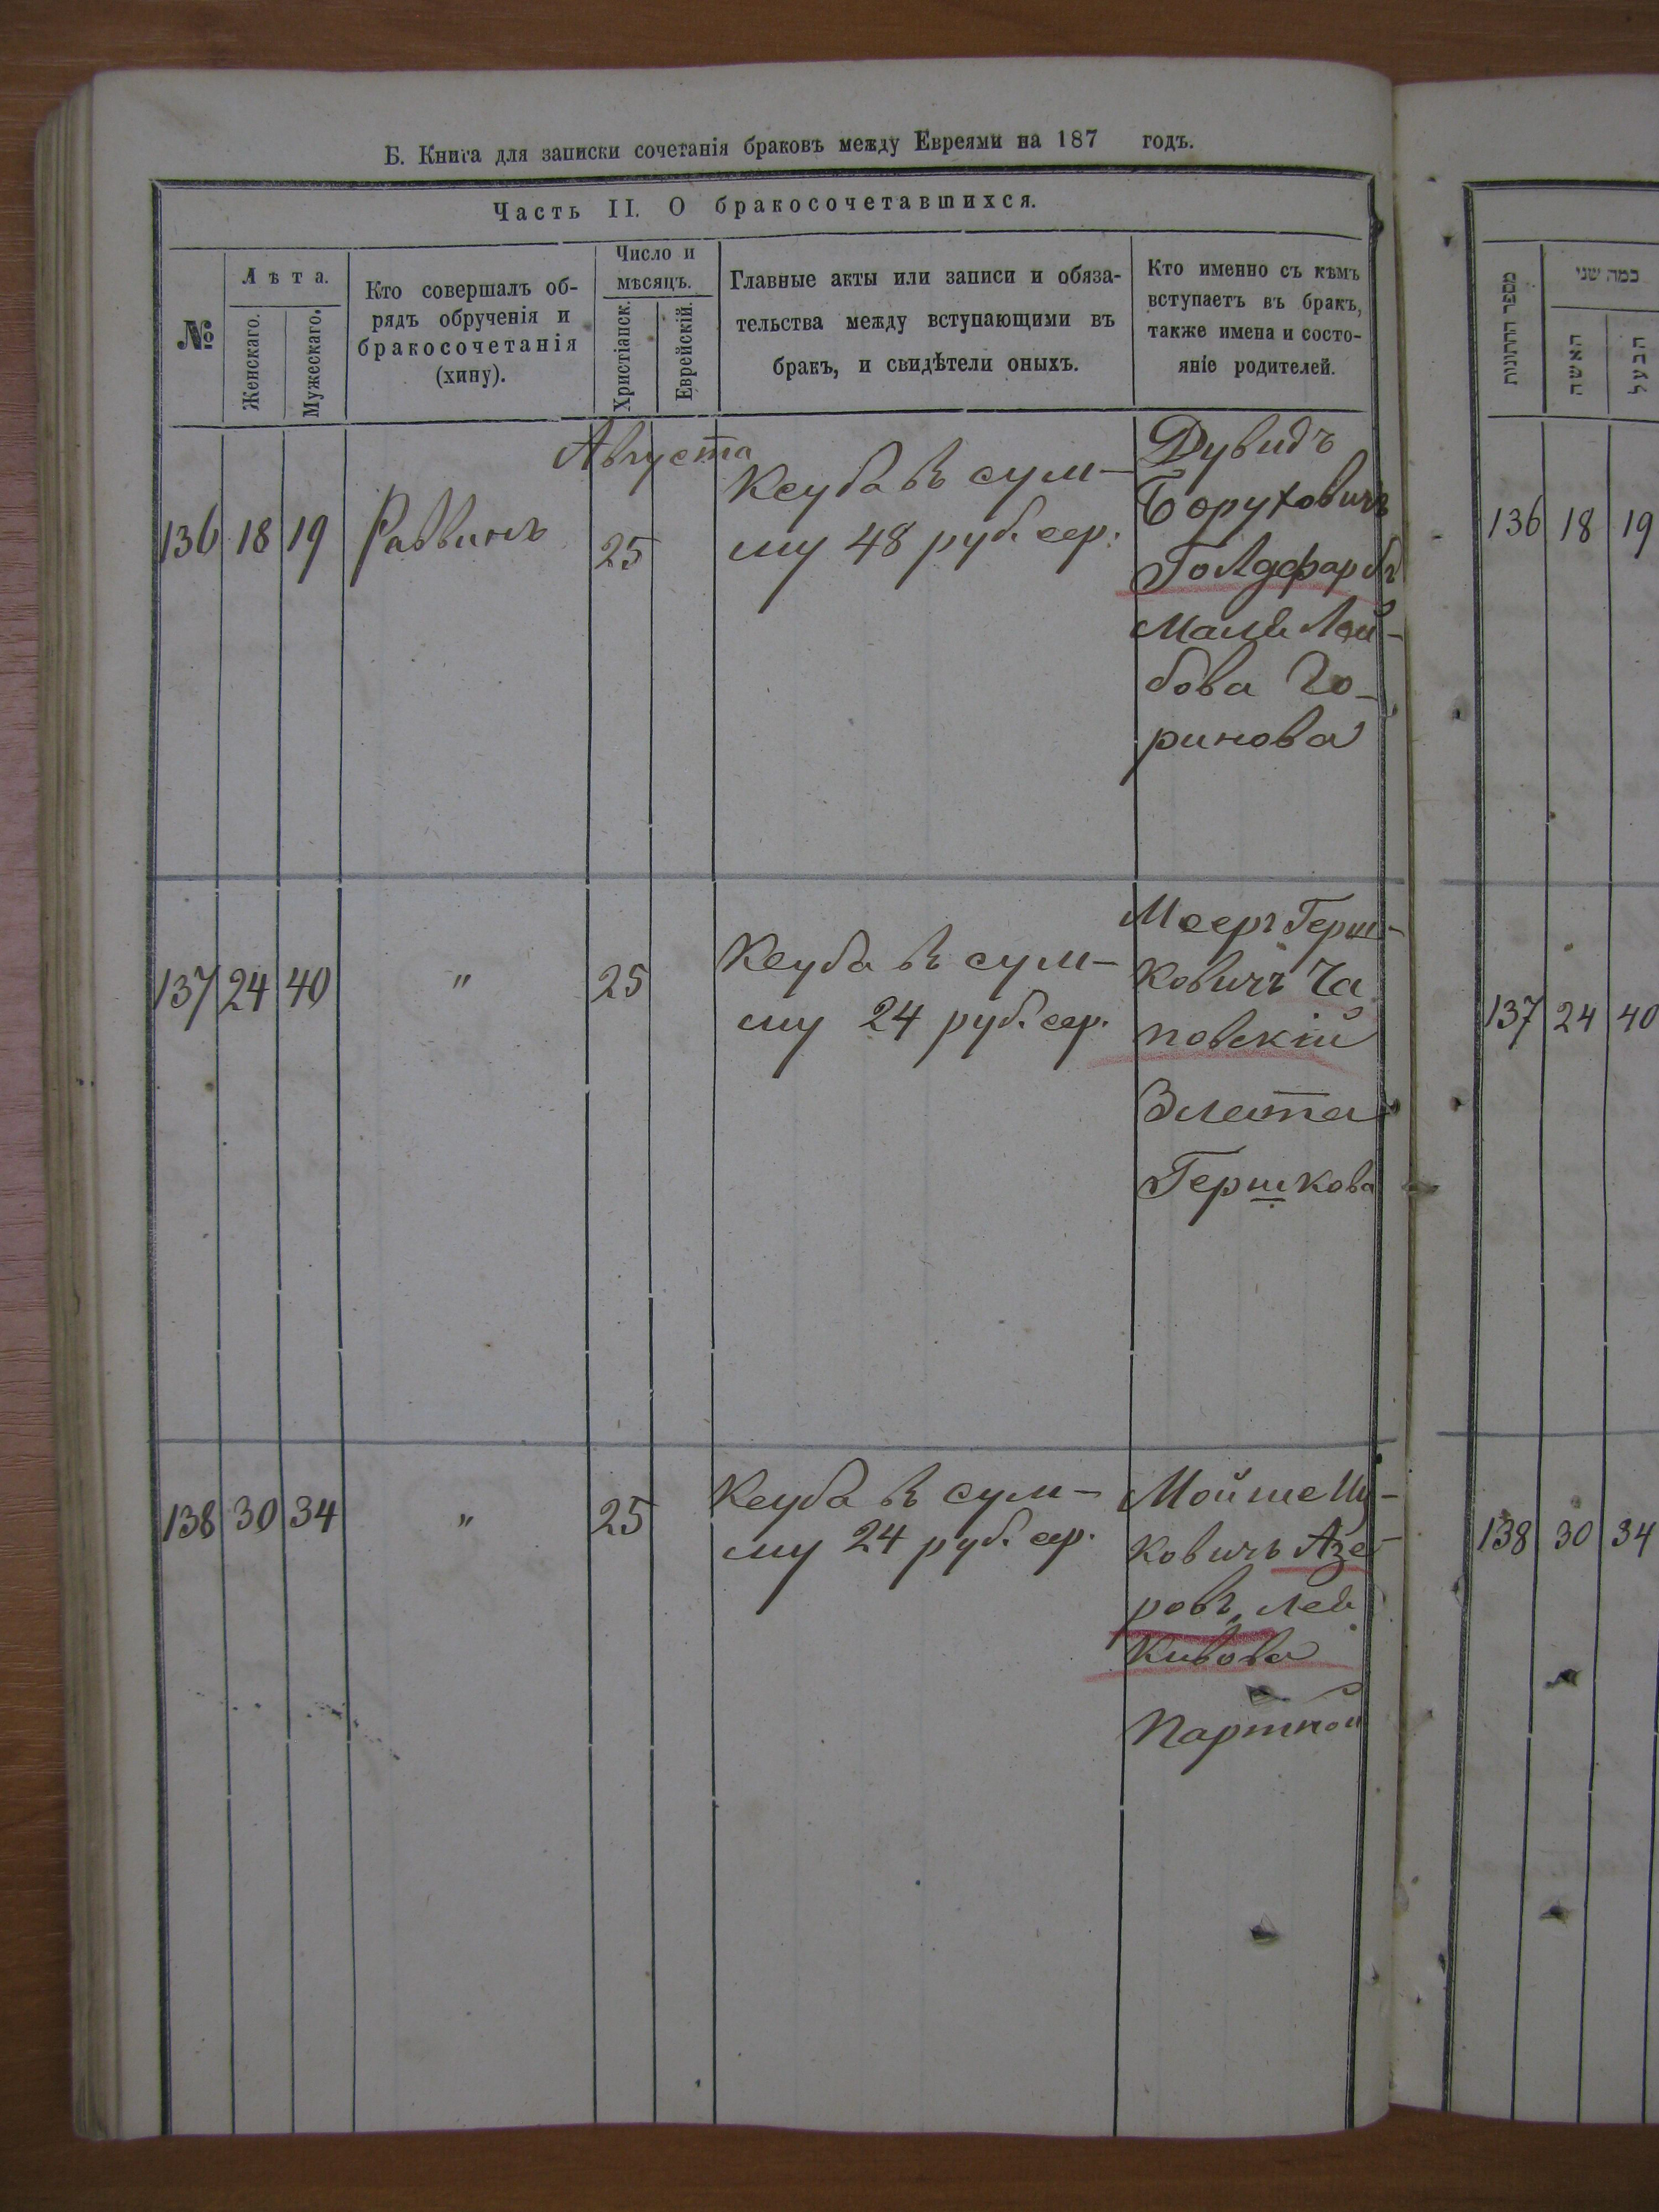 Б. Книга для записки сочетанія браковъ между Евреями на 187 годъ.
Часть II. О бракосочетавшихся.
№
Лѣта.
Женскаго.
Мужескаго.
Кто совершалъ об-
рядъ обрученія и
бракосочетанія
(хипу).
Число и
мѣсяцъ.
Христіанск.
Еврейскій.
Главные акты или записи и обяза-
тельства между вступающими въ
бракъ, и свидѣтели оныхъ.
Кто именно съ кѣмъ
вступаетъ въ бракъ,
также имена и состо-
яніе родителей.
Августа
136 18 19 Раввинъ 25
Ксуба въ сум-
му 48 руб. сер.
Дувидъ
Боруховичъ
Голдфарбъ
Лей-
бова Го-
ринова
137 24 40 " 25
Ксуба въ сум-
му 24 руб. сер.
Мееръ Герш-
ковичъ Ча
повскій
Злата
Гершкова
138 30 34 " 25
Ксуба въ сум-
му 24 руб. сер.
Мойше
ковичъ Азе-
ровъ
Кивова
Портной
מספר החתונות
כמה שני
האשה
הבעל
136 18 19
137 24 40
138 30 34